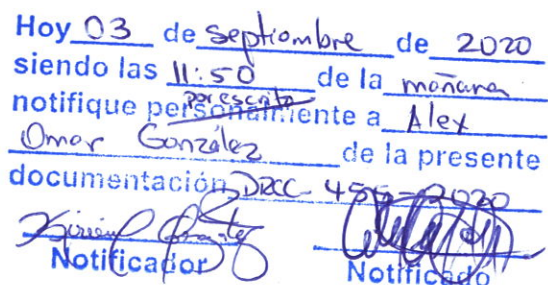 Hoy 03 de Septiembre de 2020
siendo las 11:50 de la mañana
por escrito
notifique personalmente a Alex
Omar González de la presente
documentación DRCC- 455-2020
Notificador Notificado